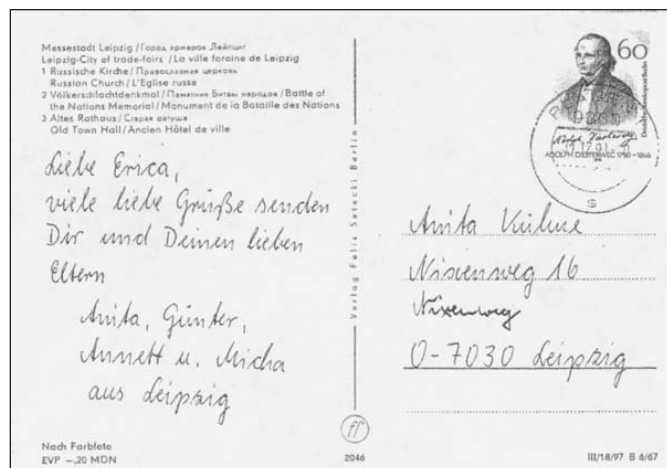 Messestadt Leipzig / Город ярмарок Лейпциг
Leipzig-City of trade-fairs / La ville foraine de Leipzig
1 Russische Kirche / Православная церковь
Russian Church / L'Eglise russe
2 Völkerschlachtdenkmal / Памятник Битвы народов / Battle of
the Nations Memorial / Monument de la Bataille des Nations
3 Altes Rathaus / Старая ратуша
Old Town Hall / Ancien Hôtel de ville
Liebe Erica,
viele liebe Grüße senden
Dir und Deinen lieben
Eltern
Anita, Günter,
Annett u. Micha
aus Leipzig
Nach Farbfoto
EVP –,20 MDN
Verlag Felix Setecki Berlin
2046
60
Deutsche Bundespost Berlin
ADOLPH DIESTERWEG 1790–1866
s
Anita Kühne
Nixenweg 16
Nixenweg
O-7030 Leipzig
III/18/97 B 6/67